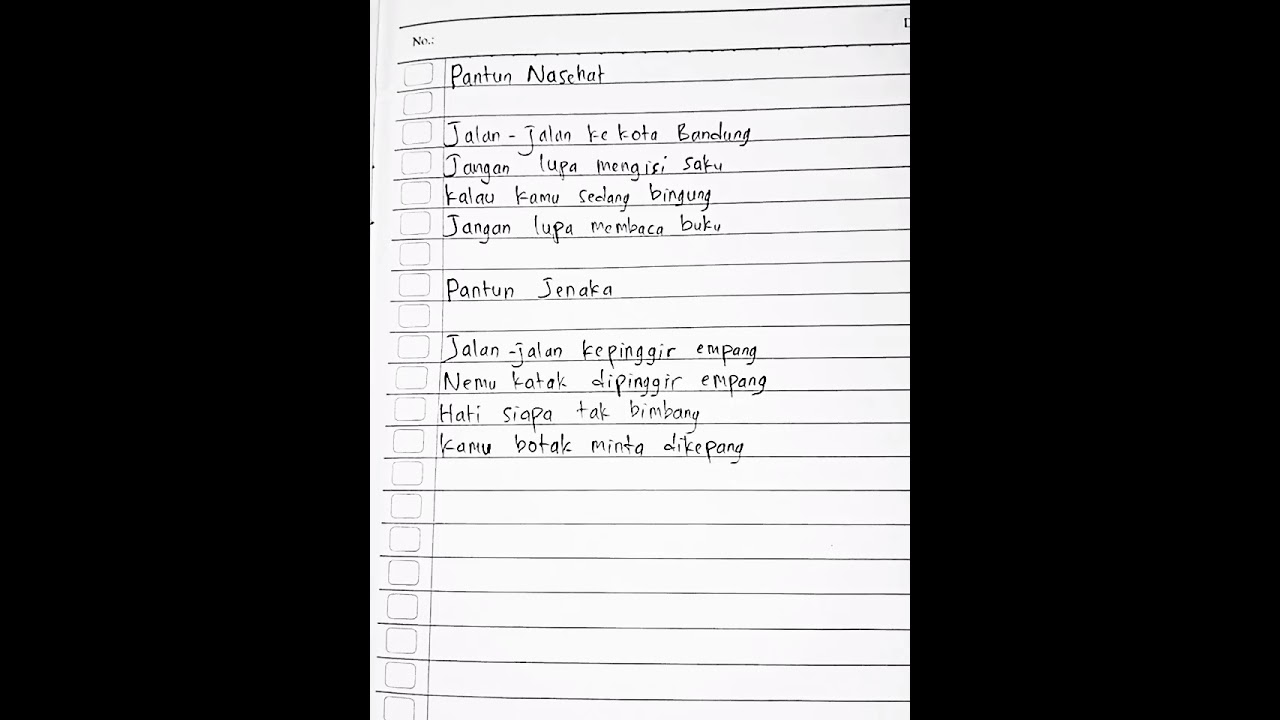 No.:
Pantun Nasehat
Jalan-jalan ke kota Bandung
Jangan lupa mengisi saku
kalau kamu sedang bingung
Jangan lupa membaca buku
Pantun Jenaka
Jalan-jalan kepinggir empang
Nemu katak dipinggir empang
Hati siapa tak bimbang
kamu botak minta dikepang